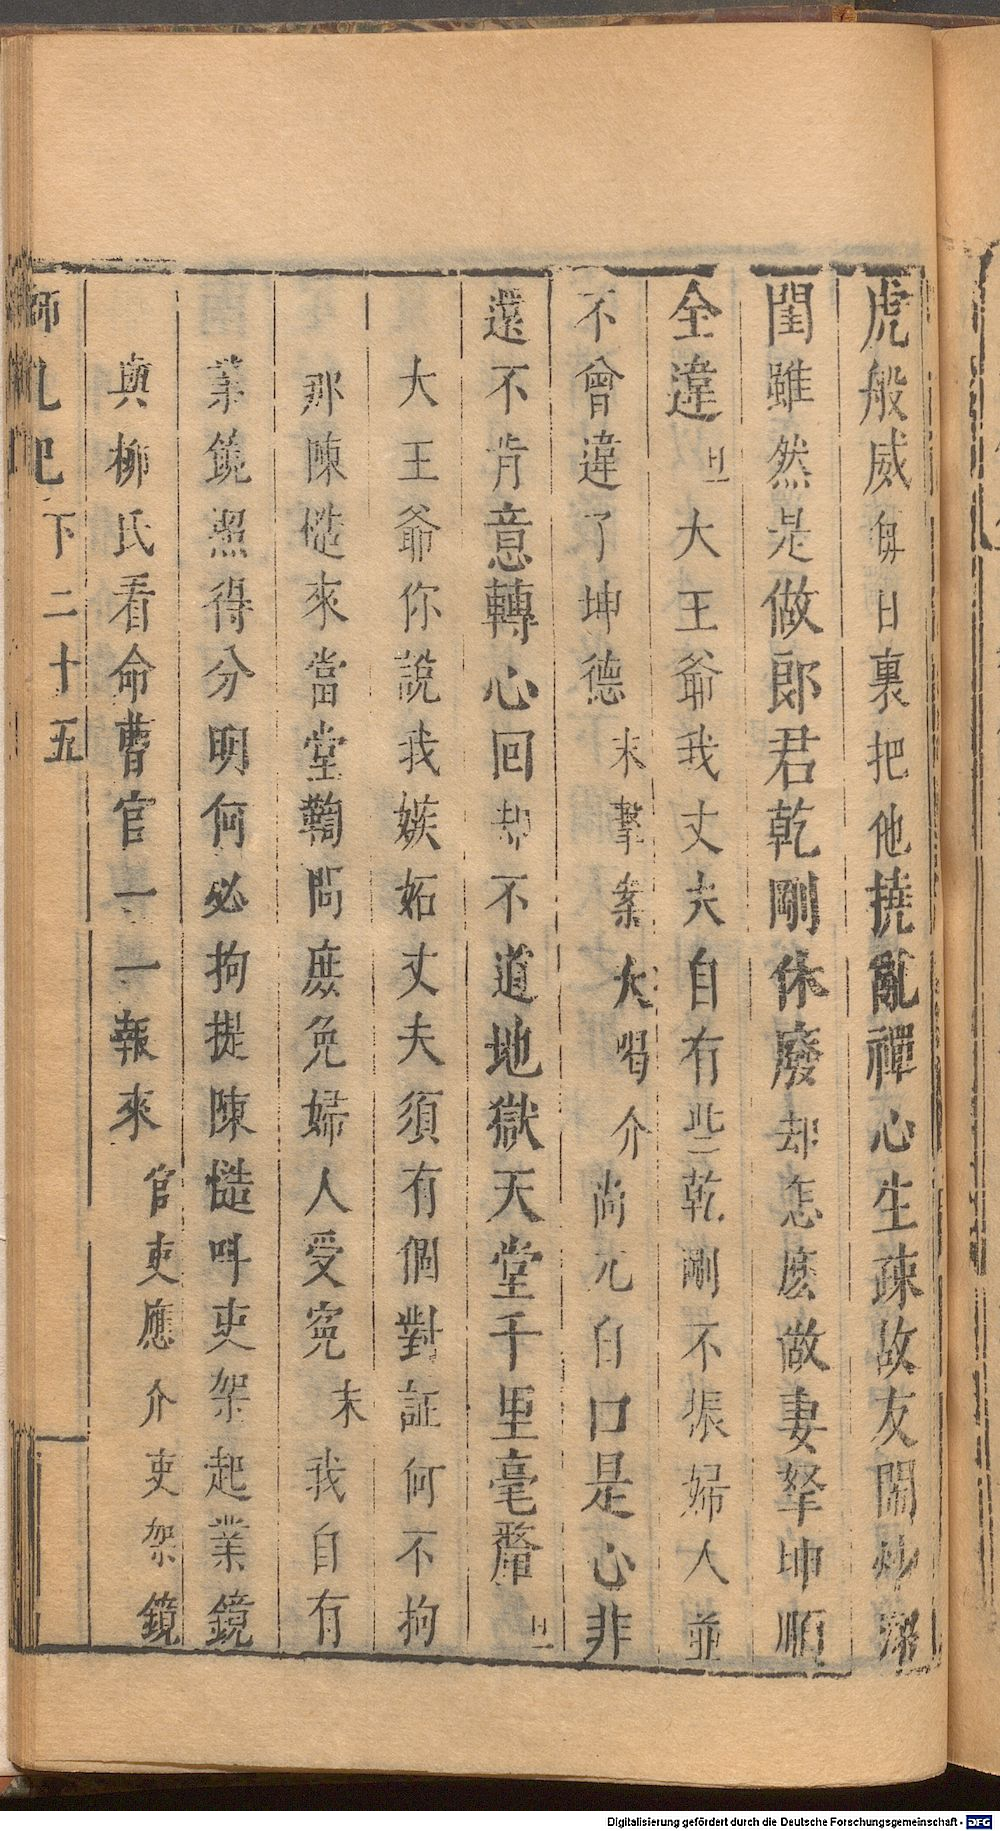 虎般威每日裏把他撓亂禪心生疎故友鬧炒深
閨雖然是做郎君乾剛休廢却怎麽做妻孥坤順
全違旦大王爺我丈夫自有些乾剛不振婦人並
不曾違了坤德末擊案大喝介尚兀自口是心非
還不肯意轉心回却不道地獄天堂千里毫釐旦
大王爺你說我嫉妬丈夫須有個對証何不拘
那陳慥來當堂鞫問庶免婦人受寃末我自有
業鏡照得分明何必拘提陳慥叫吏架起業鏡
與柳氏看命曹官一一報來官吏應介吏架鏡
獅吼記 下 二十五
Digitalisierung gefördert durch die Deutsche Forschungsgemeinschaft - DFG